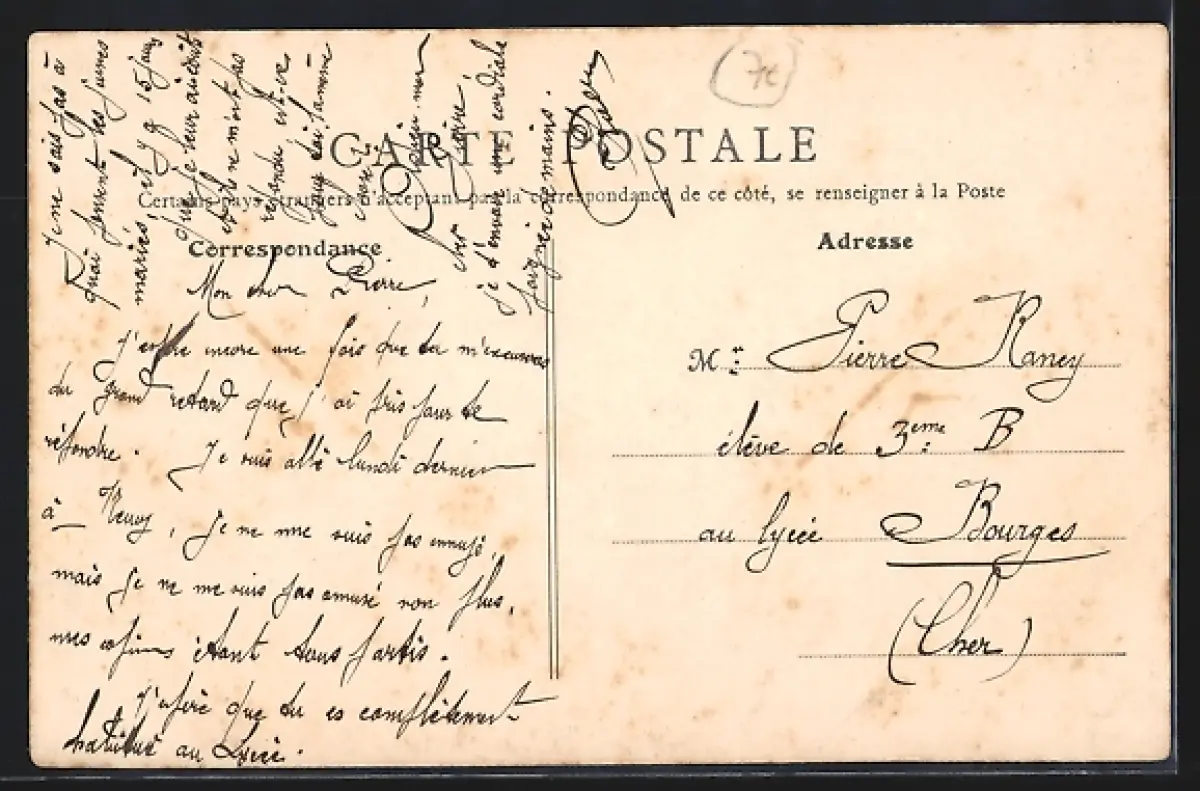 7€
CARTE POSTALE
Certains pays étrangers n'acceptant pas la correspondance de ce côté, se renseigner à la Poste
Correspondance
Adresse
Mon cher Pierre,
J'espère encore une fois que tu m'excuseras
du grand retard que j'ai pris pour te
répondre. Je suis allé lundi dernier
à Neuvy, je ne me suis pas ennuyé,
mais je ne me suis pas amusé non plus,
mes copins étant tous partis.
J'espère que tu es complètement
habitué au Lycée.
Je ne sais pas à
quoi pensent les jeunes
mariés, il y a 15 jours
que je leur ai écrit
et ils ne m'ont pas
répondu est-ce
pour
mon
cher Pierre,
je t'envoie une cordiale
poignée de mains.
Mr: Pierre Rancy
élève de 3eme: B
au lycée Bourges
(Cher)